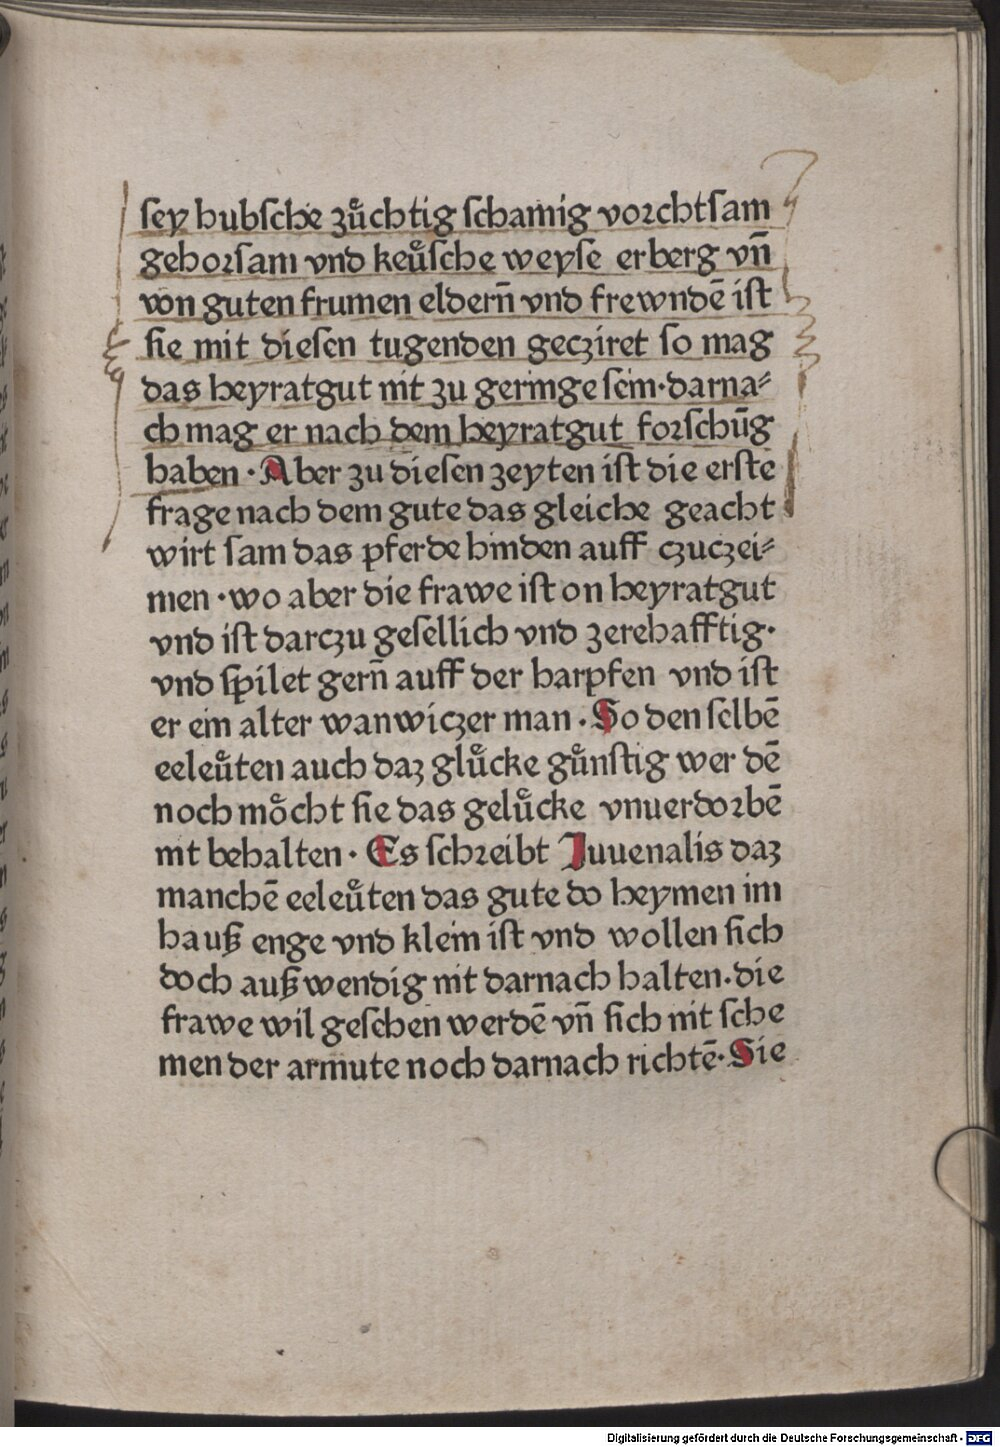 ſey hubſche zuͤchtig ſchamig voꝛchtſam
gehoꝛſam vnd keuͤſche weyſe erberg vn̄
von guten frumen eldern̄ vnd frewndē iſt
ſie mit dieſen tugenden gecziret ſo mag
das heyratgut nit zu geringe ſein·darna⸗
ch mag er nach dem heyratgut foꝛſchūg
haben · Aber zu dieſen zeyten iſt die erſte
frage nach dem gute das gleiche geacht
wirt ſam das pferde hinden auff czuczei⸗
men ·wo aber die frawe iſt on heyratgut
vnd iſt darczu geſellich vnd zerehafftig·
vnd ſpilet gern̄ auff der harpfen vnd iſt
er ein alter wanwiczer man · So den ſelbē
eeleuͤten auch daz gluͤcke guͤnſtig wer dē
noch moͤcht ſie das geluͤcke vnuerdoꝛbē
nit behalten · Es ſchꝛeibt Juuenalis daz
manchē eeleuͤten das gute do heymen im
hauß enge vnd klein iſt vnd wollen ſich
doch außwendig nit darnach halten·die
frawe wil geſehen werdē vn̄ ſich nit ſche
men der armute noch darnach richtē· Sie
Digitalisierung gefördert durch die Deutsche Forschungsgemeinschaft - DFG